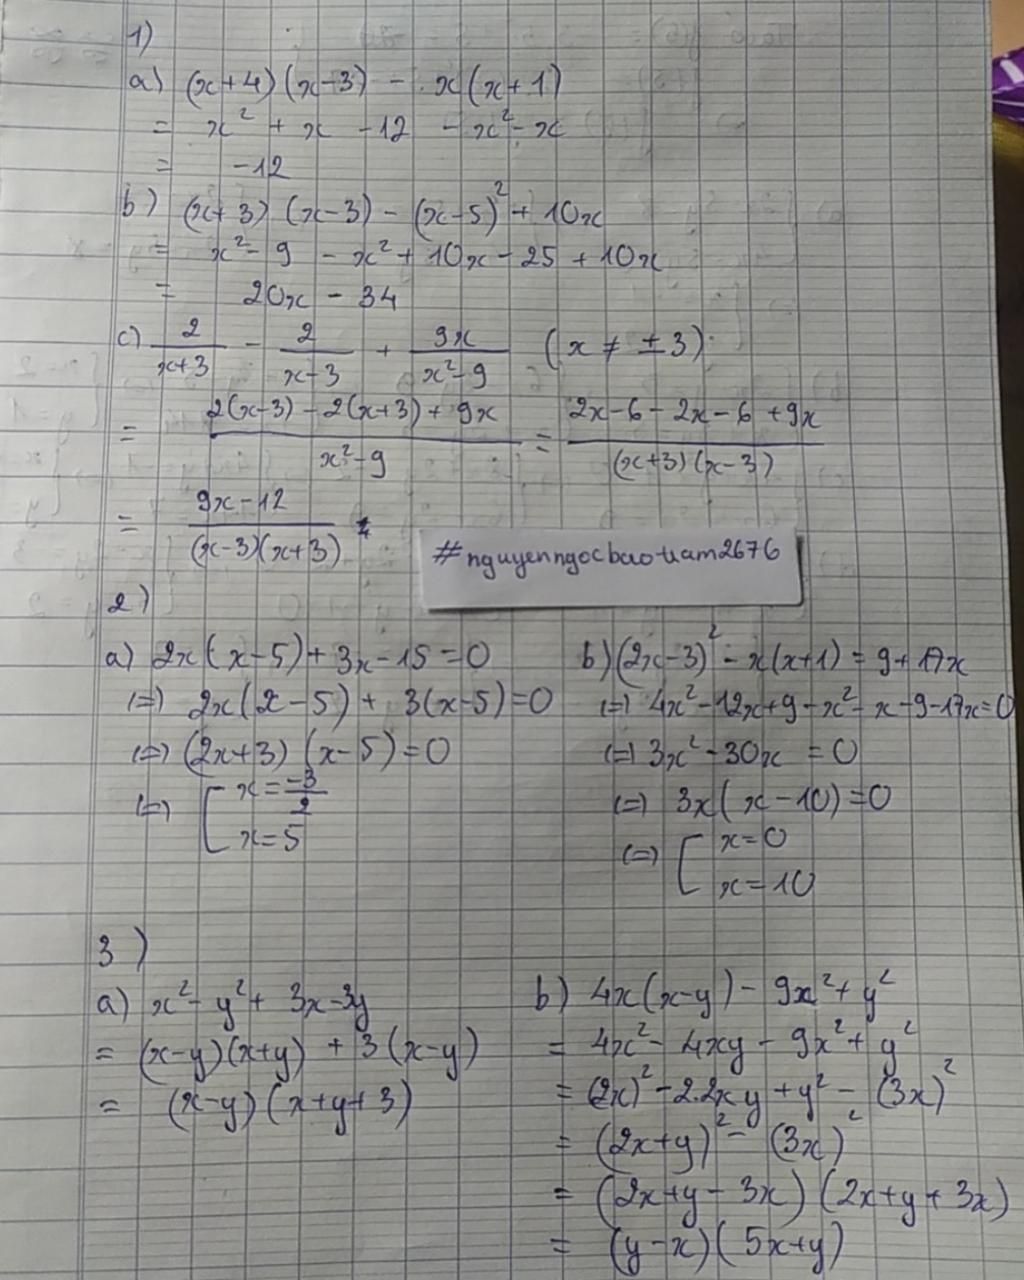 1)
a) (x+4)(x-3) - x(x+1)
= x² + x - 12 - x² - x
= -12
b) (x+3)(x-3) - (x-5)² + 10x
= x² - 9 - x² + 10x - 25 + 10x
= 20x - 34
c) 2/(x+3) - 2/(x-3) + 9x/(x²-9) (x ≠ ±3)
= (2(x-3) - 2(x+3) + 9x)/(x²-9) = (2x-6-2x-6+9x)/((x+3)(x-3))
= (9x-12)/((x-3)(x+3))
#nguyenngocbaotram2676
2)
a) 2x(x-5) + 3x - 15 = 0
(=) 2x(x-5) + 3(x-5) = 0
(=) (2x+3)(x-5) = 0
(=) [ x = -3/2
x = 5
b) (2x-3)² - x(x+1) = 9 + 17x
(=) 4x² - 12x + 9 - x² - x - 9 - 17x = 0
(=) 3x² - 30x = 0
(=) 3x(x-10) = 0
(=) [ x = 0
x = 10
3)
a) x² - y² + 3x - 3y
= (x-y)(x+y) + 3(x-y)
= (x-y)(x+y+3)
b) 4x(x-y) - 9x² + y²
= 4x² - 4xy - 9x² + y²
= (2x)² - 2.2xy + y² - (3x)²
= (2x+y)² - (3x)²
= (2x+y-3x)(2x+y+3x)
= (y-x)(5x+y)